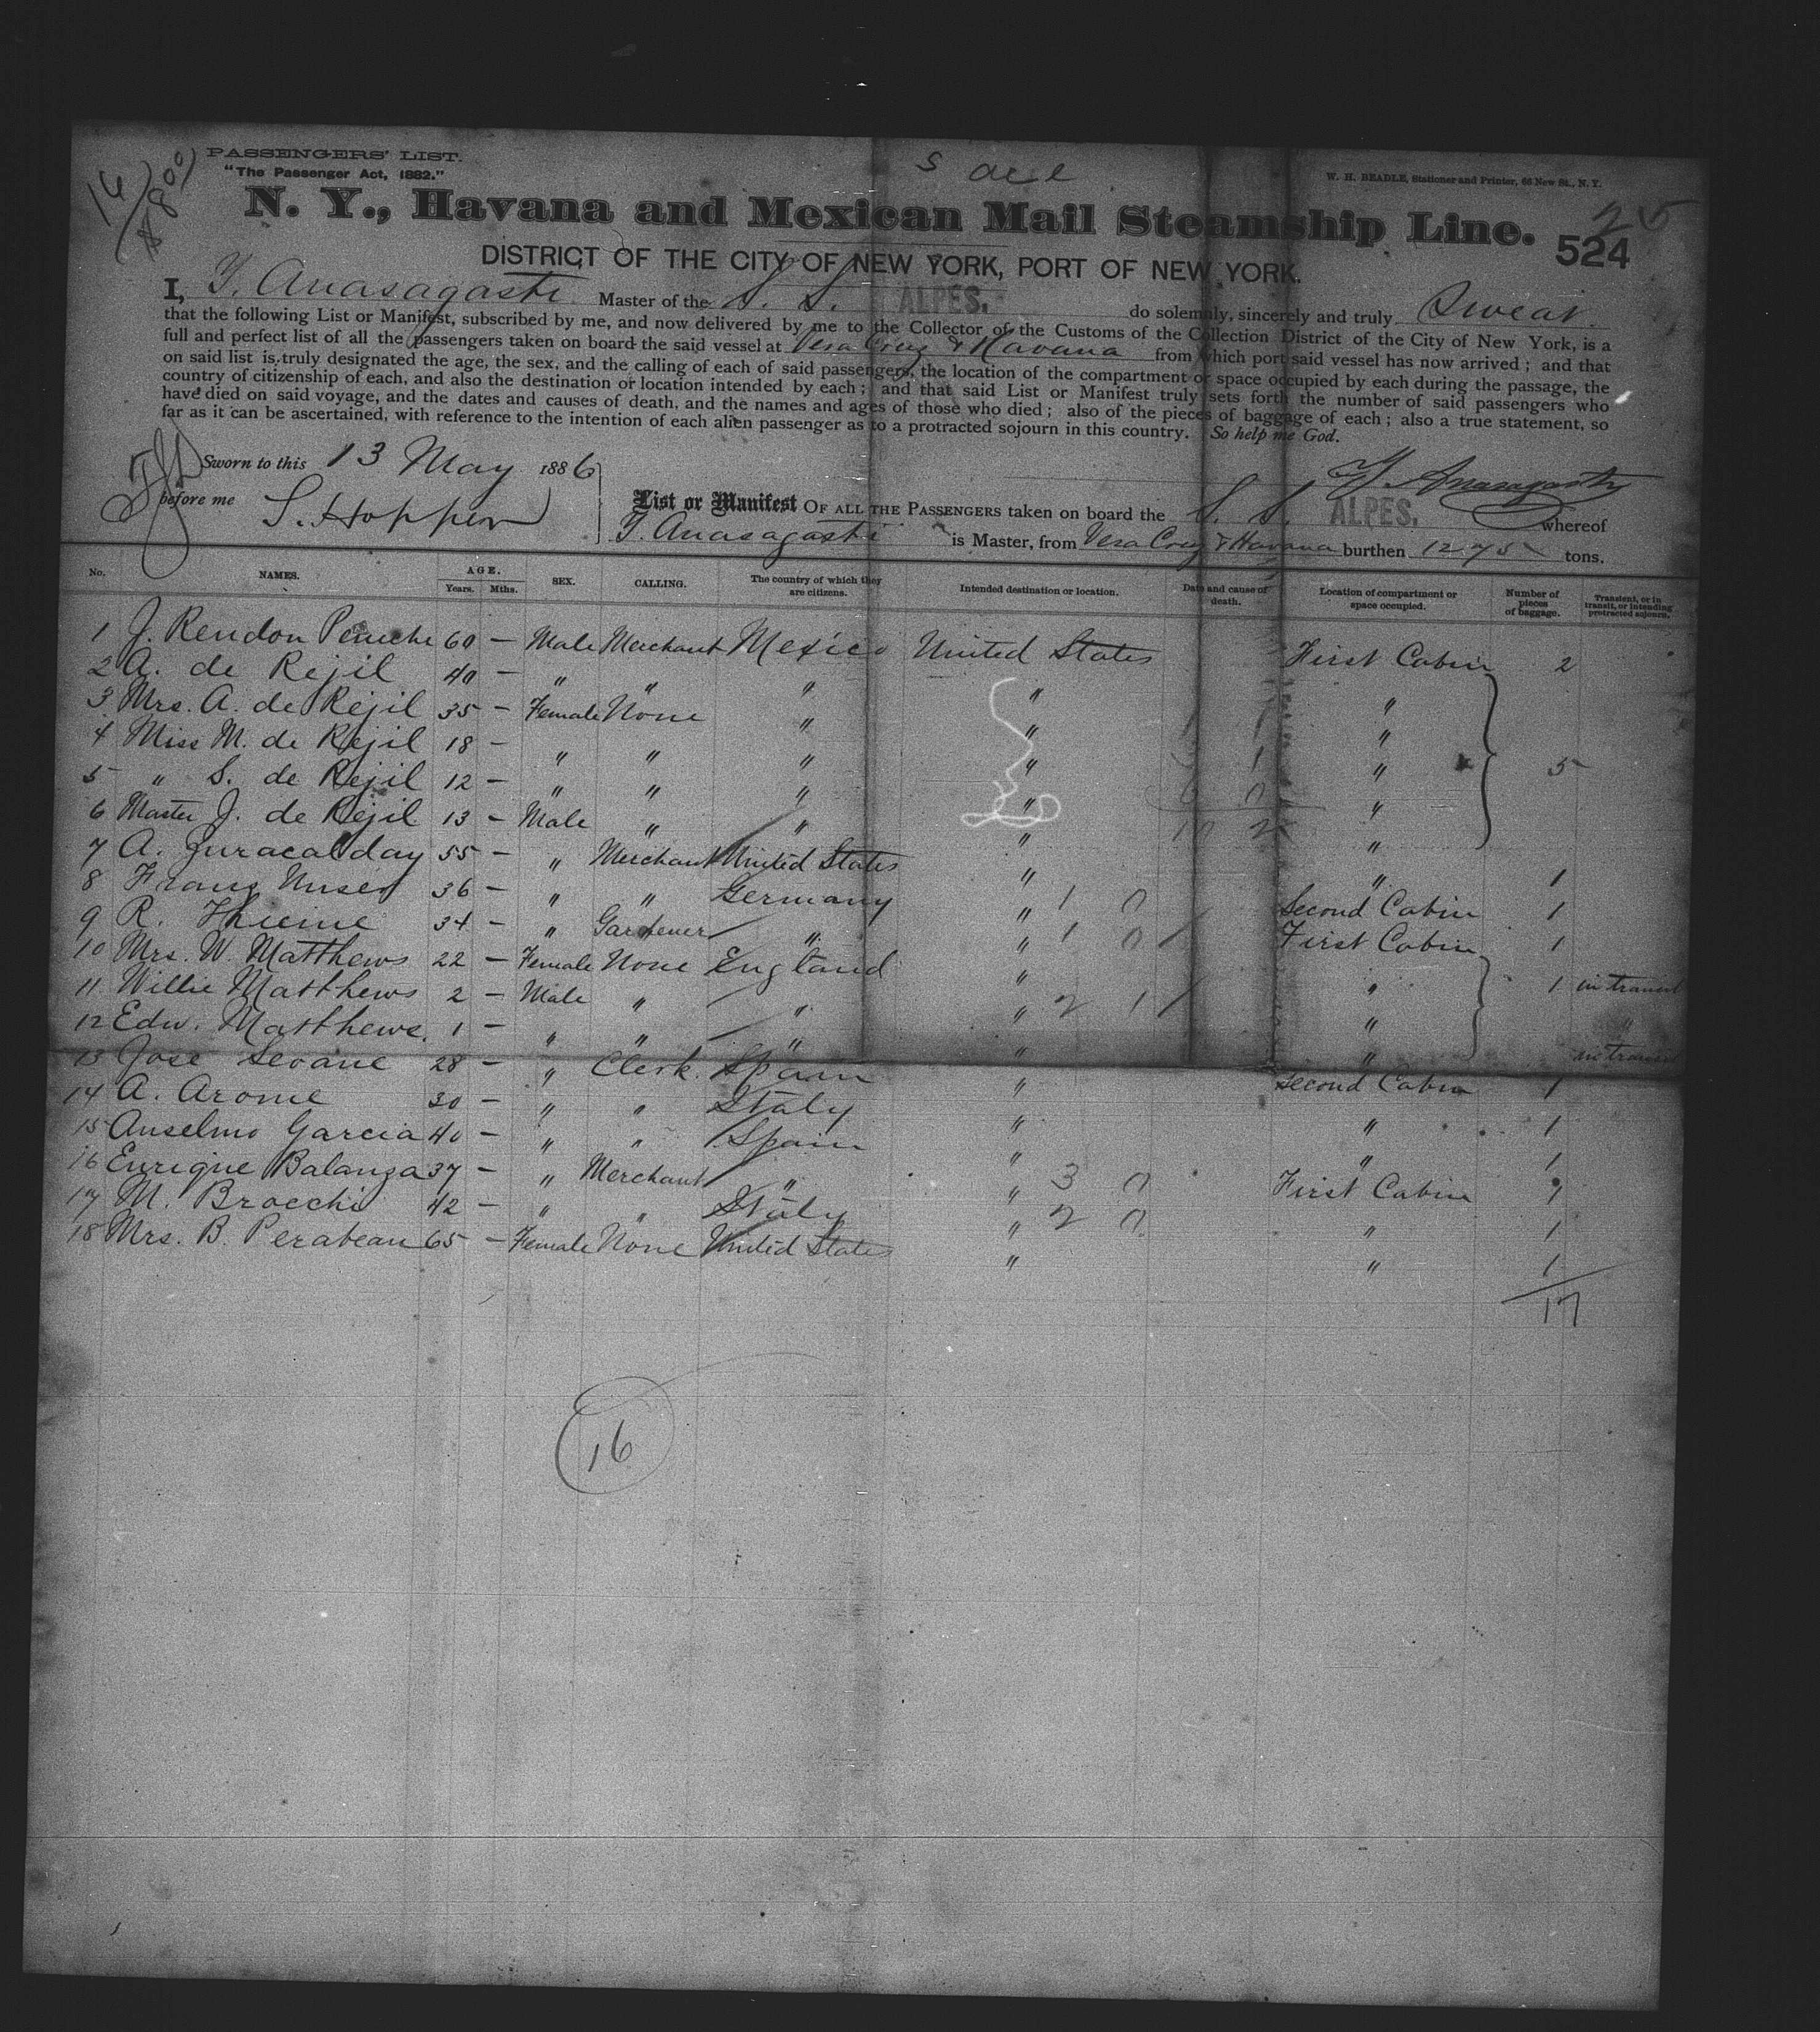 PASSENGERS' LIST.
"The Passenger Act, 1882."
W. H. BEADLE, Stationer and Printer, 66 New St., N. Y.
N. Y., Havana and Mexican Mail Steamship Line.
25
524
DISTRICT OF THE CITY OF NEW YORK, PORT OF NEW YORK.
I, Y. Anasagasti Master of the S. S. ALPES. do solemnly, sincerely and truly Swear
that the following List or Manifest, subscribed by me, and now delivered by me to the Collector of the Customs of the Collection District of the City of New York, is a
full and perfect list of all the passengers taken on board the said vessel at Vera Cruz & Havana from which port said vessel has now arrived; and that
on said list is truly designated the age, the sex, and the calling of each of said passengers, the location of the compartment or space occupied by each during the passage, the
country of citizenship of each, and also the destination or location intended by each; and that said List or Manifest truly sets forth the number of said passengers who
have died on said voyage, and the dates and causes of death, and the names and ages of those who died; also of the pieces of baggage of each; also a true statement, so
far as it can be ascertained, with reference to the intention of each alien passenger as to a protracted sojourn in this country. So help me God.
Sworn to this 13 May 1886
Y. Anasagasti
before me S. Hopper
List or Manifest OF ALL THE PASSENGERS taken on board the S. S. ALPES. whereof
Y. Anasagasti is Master, from Vera Cruz & Havana burthen 1275 tons.
No. NAMES. AGE. Years. Mths. SEX. CALLING. The country of which they are citizens. Intended destination or location. Date and cause of death. Location of compartment or space occupied. Number of pieces of baggage. Transient, or in transit, or intending protracted sojourn.
1 J. Rendon Peniche 60 — Male Merchant Mexico United States First Cabin 2
2 A. de Rejil 40 — " " " " "
3 Mrs. A. de Rejil 35 — Female None " " "
4 Miss M. de Rejil 18 — " " " " " 5
5 " S. de Rejil 12 — " " " " "
6 Master J. de Rejil 13 — Male " " " "
7 A. Zuracalday 55 — " Merchant United States " " 1
8 Franz 36 — " " Germany " 1 0 Second Cabin 1
9 R. Thieme 34 — " Gardener " " 1 0 First Cabin 1
10 Mrs. W. Matthews 22 — Female None England " " 1 in transit
11 Willie Matthews 2 — Male " " " 2 1 " "
12 Edw. Matthews. 1 — " " " " " in transit
13 Jose Seoane 28 — " Clerk. Spain " Second Cabin 1
14 A. Arome 30 — " " Italy " " 1
15 Anselmo Garcia 40 — " " Spain " " 1
16 Enrique Balanza 37 — " Merchant " " 3 0 First Cabin 1
17 M. Brocchi 42 — " " Italy " 2 0 " 1
18 Mrs. B. Perabeau 65 — Female None United States " " 1
17
16